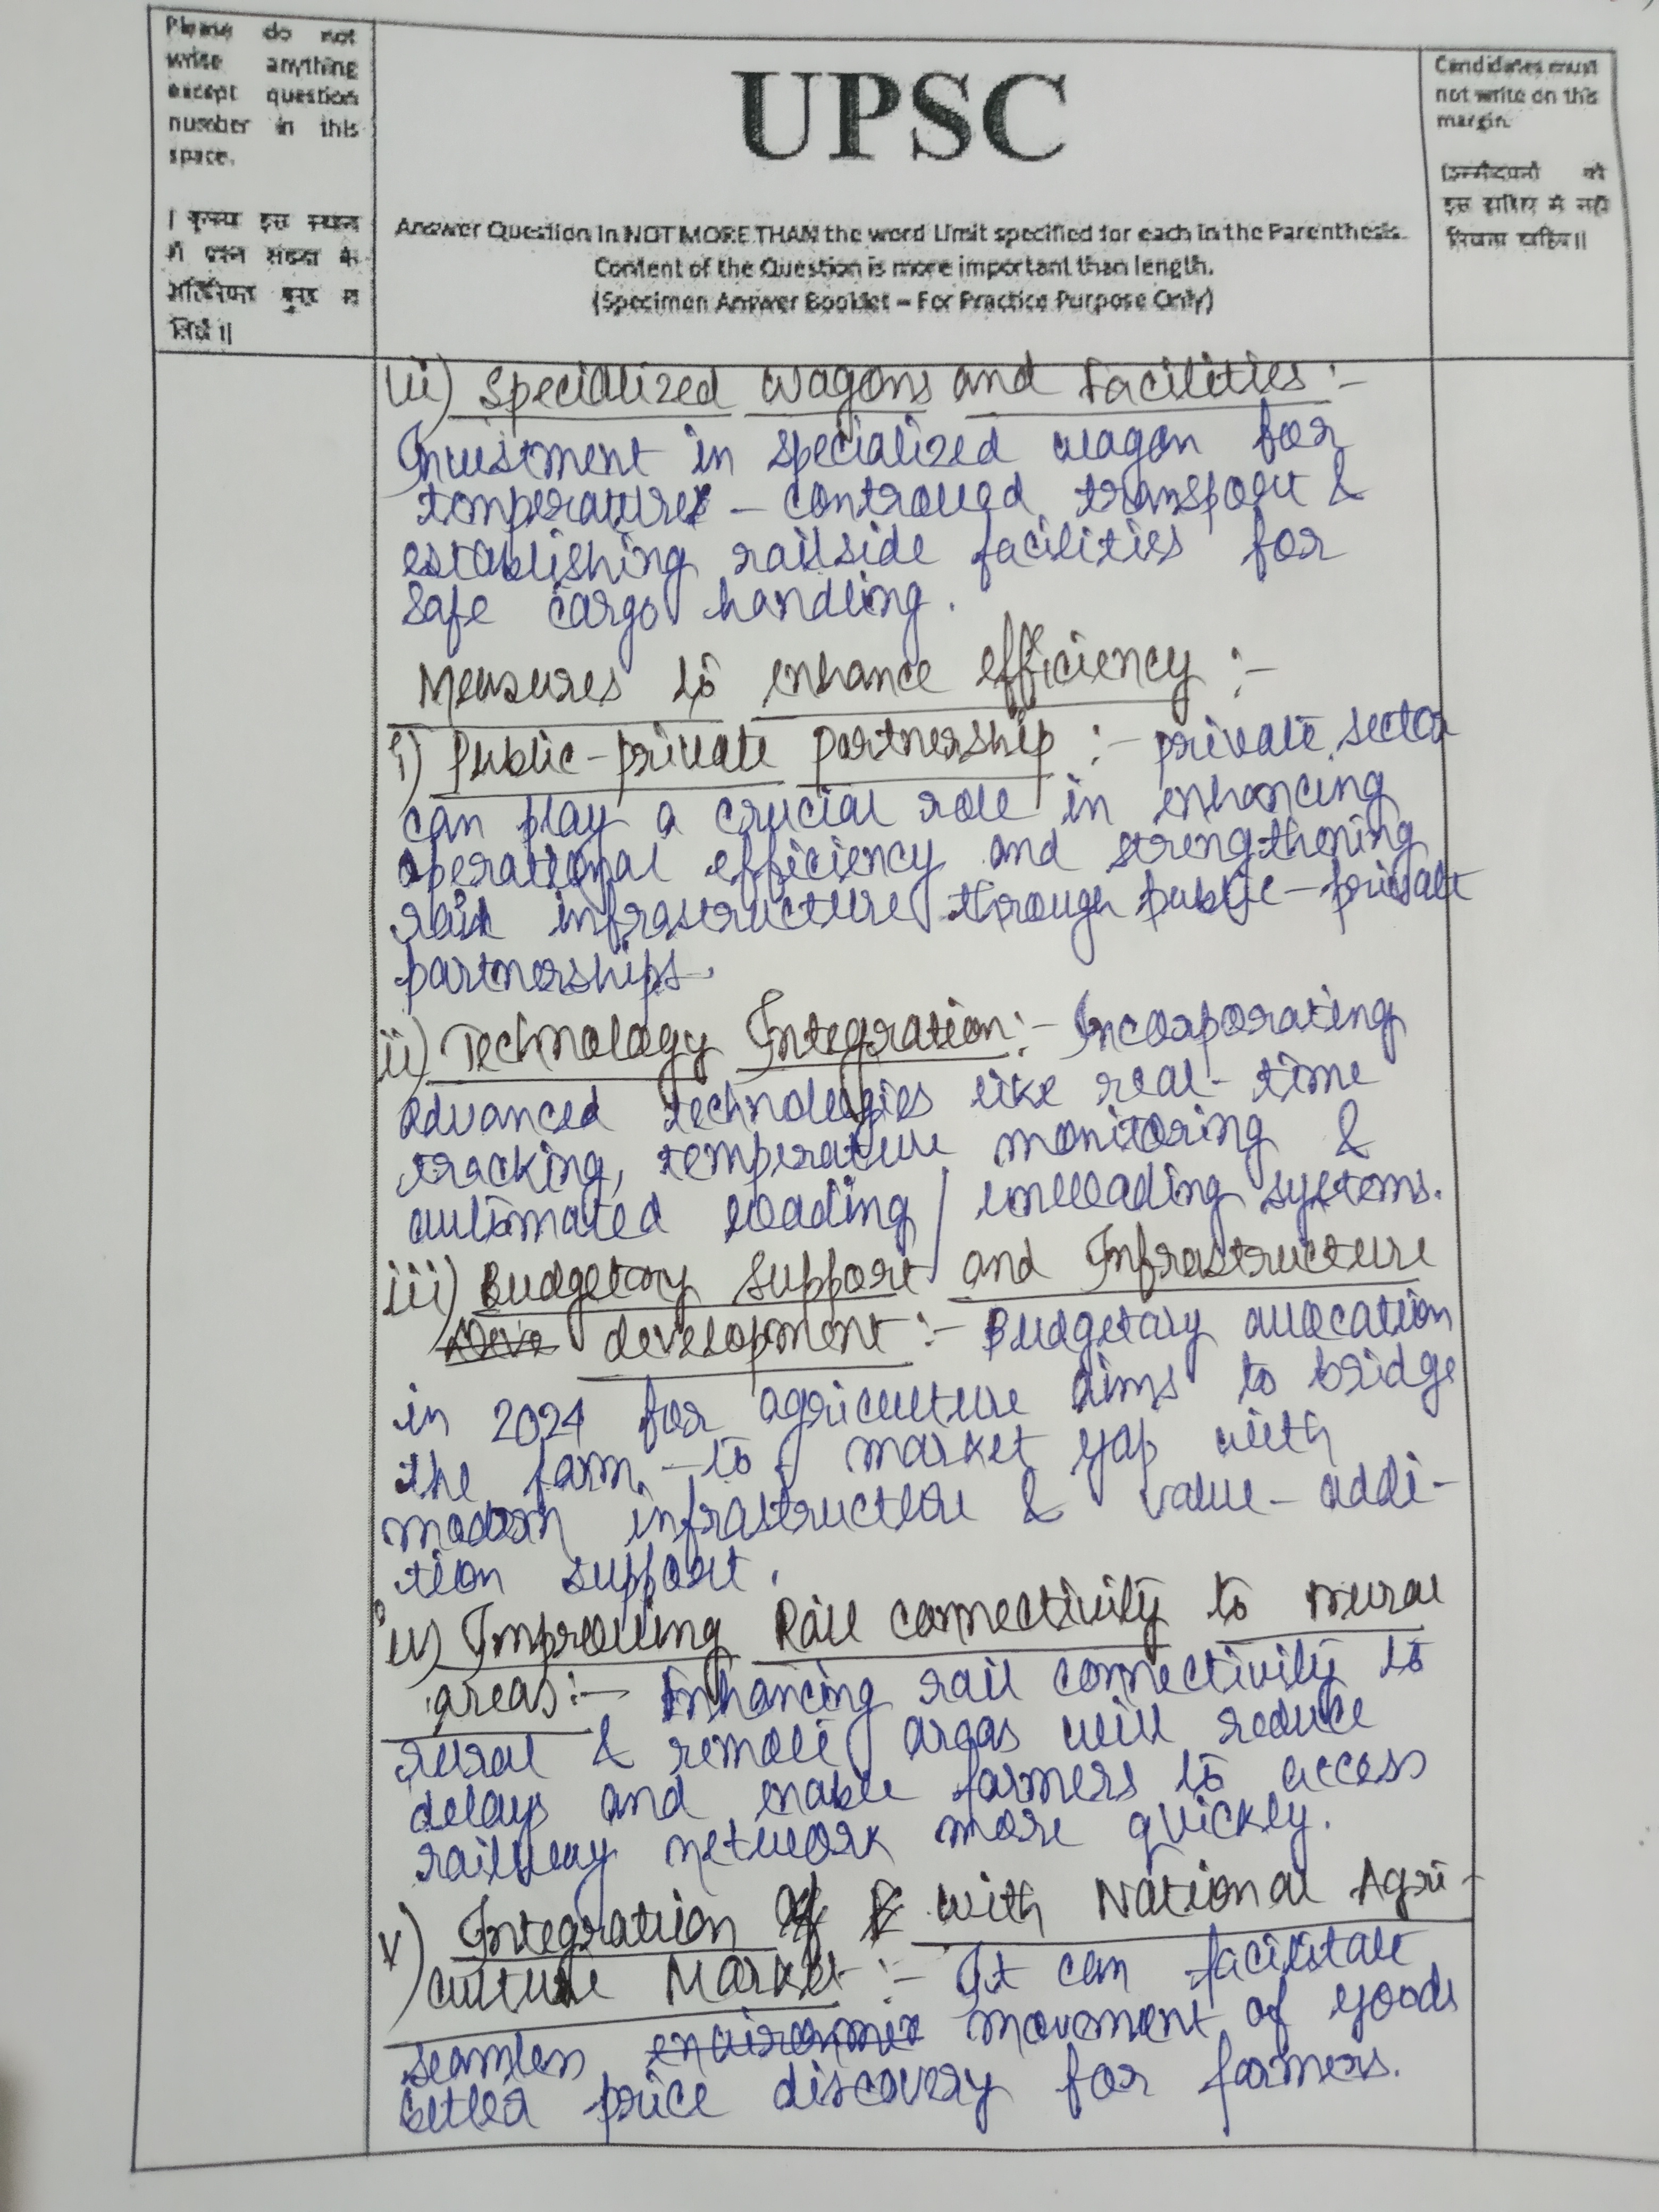 Please do not
write anything
except question
number in this
space.
कृपया इस स्थान
में प्रश्न संख्या के
अतिरिक्त कुछ न
लिखें॥
UPSC
Answer Question in NOT MORE THAN the word Limit specified for each in the Parenthesis.
Content of the Question is more important than length.
(Specimen Answer Booklet – For Practice Purpose Only)
Candidates must
not write on this
margin.
(उम्मीदवारों को
इस हाशिए में नहीं
लिखना चाहिए॥
Specialized wagons and Facilities :-
Investment in specialized wagon for
temperature - controlled transport &
establishing railside facilities for
Safe cargo handling.
Measures to enhance efficiency :-
i) Public-private partnership :- private sector
can play a crucial role in enhancing
operational efficiency and strengthening
rail infrastructure through public-private
partnerships.
ii) Technology Integration :- Incorporating
advanced technologies like real-time
tracking, temperature monitoring &
automated loading / unloading systems.
iii) Budgetary Support and Infrastructure
development :- Budgetary allocation
in 2024 for agriculture aims to bridge
the farm-to market gap with
modern infrastructure & value-addi-
tion support.
iv) Improving Rail connectivity to rural
areas :- Enhancing rail connectivity to
rural & remote areas will reduce
delays and enable farmers to access
railway network more quickly.
v) Integration with National Agri-
culture Market :- It can facilitate
seamless movement of goods
better price discovery for farmers.